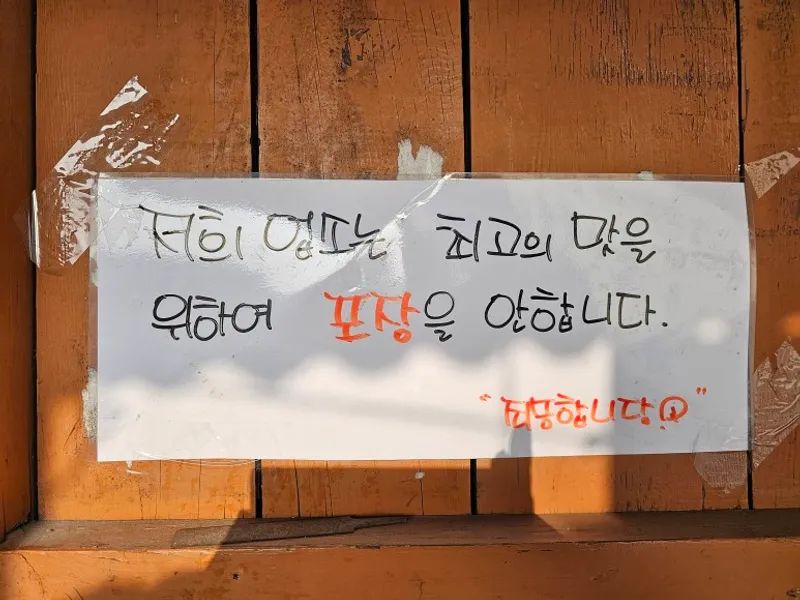 저희 업소는 최고의 맛을
위하여 포장을 안합니다.
"죄송합니다"